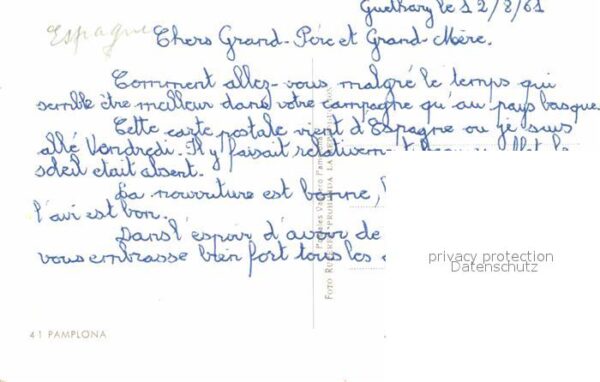 Guethary le 12/8/61
Espagne
Chers Grand-Père et Grand-Mère.
Comment allez-vous malgré le temps qui
semble être meilleur dans votre campagne qu'au pays basque.
Cette carte postale vient d'Espagne ou je suis
allé Vendredi. Il y faisait relativement
soleil etait absent.
La nourriture est bonne,
l'avi est bon.
Dans l'espoir d'avoir de
vous embrasse bien fort tous les
privacy protection
Datenschutz
41 PAMPLONA